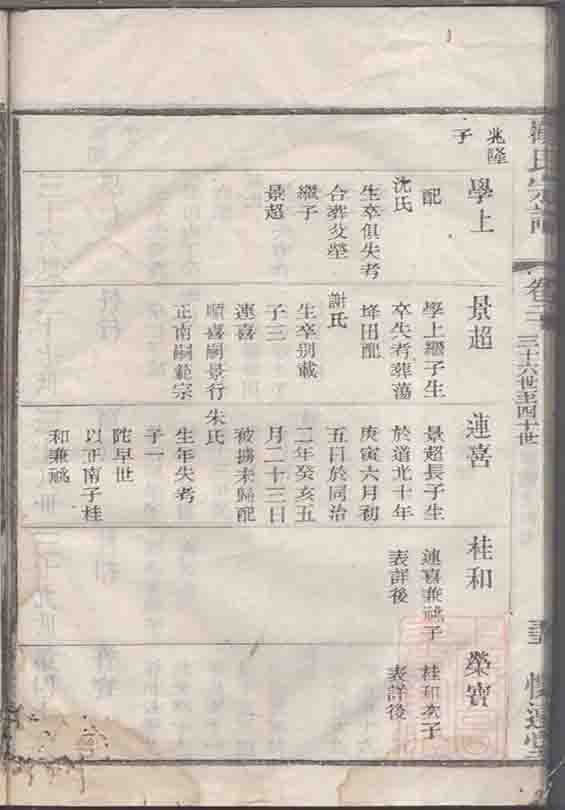 氏宗譜
卷二
三十六世至四十世
兆隆
子
學上
配
沈氏
生卒俱失考
合葬父塋
繼子
景超
景超
學上繼子生
卒失考葬蕩
垾田配
謝氏
生卒別載
子三
連喜
順喜嗣景行
正南嗣範宗
連喜
景超長子生
於道光十年
庚寅六月初
五日於同治
二年癸亥五
月二十三日
被擄未歸配
朱氏
生年失考
子一
陀早世
以正南子桂
和兼祧
桂和
連喜兼祧子
表詳後
榮寶
桂和次子
表詳後